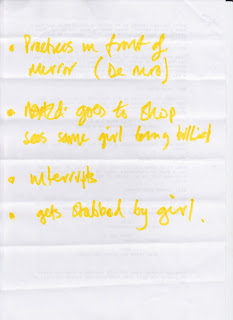 • Practices in front of
mirror (De niro)
• goes to shop
sees same girl being bullied
• interrupts
• gets stabbed by girl.